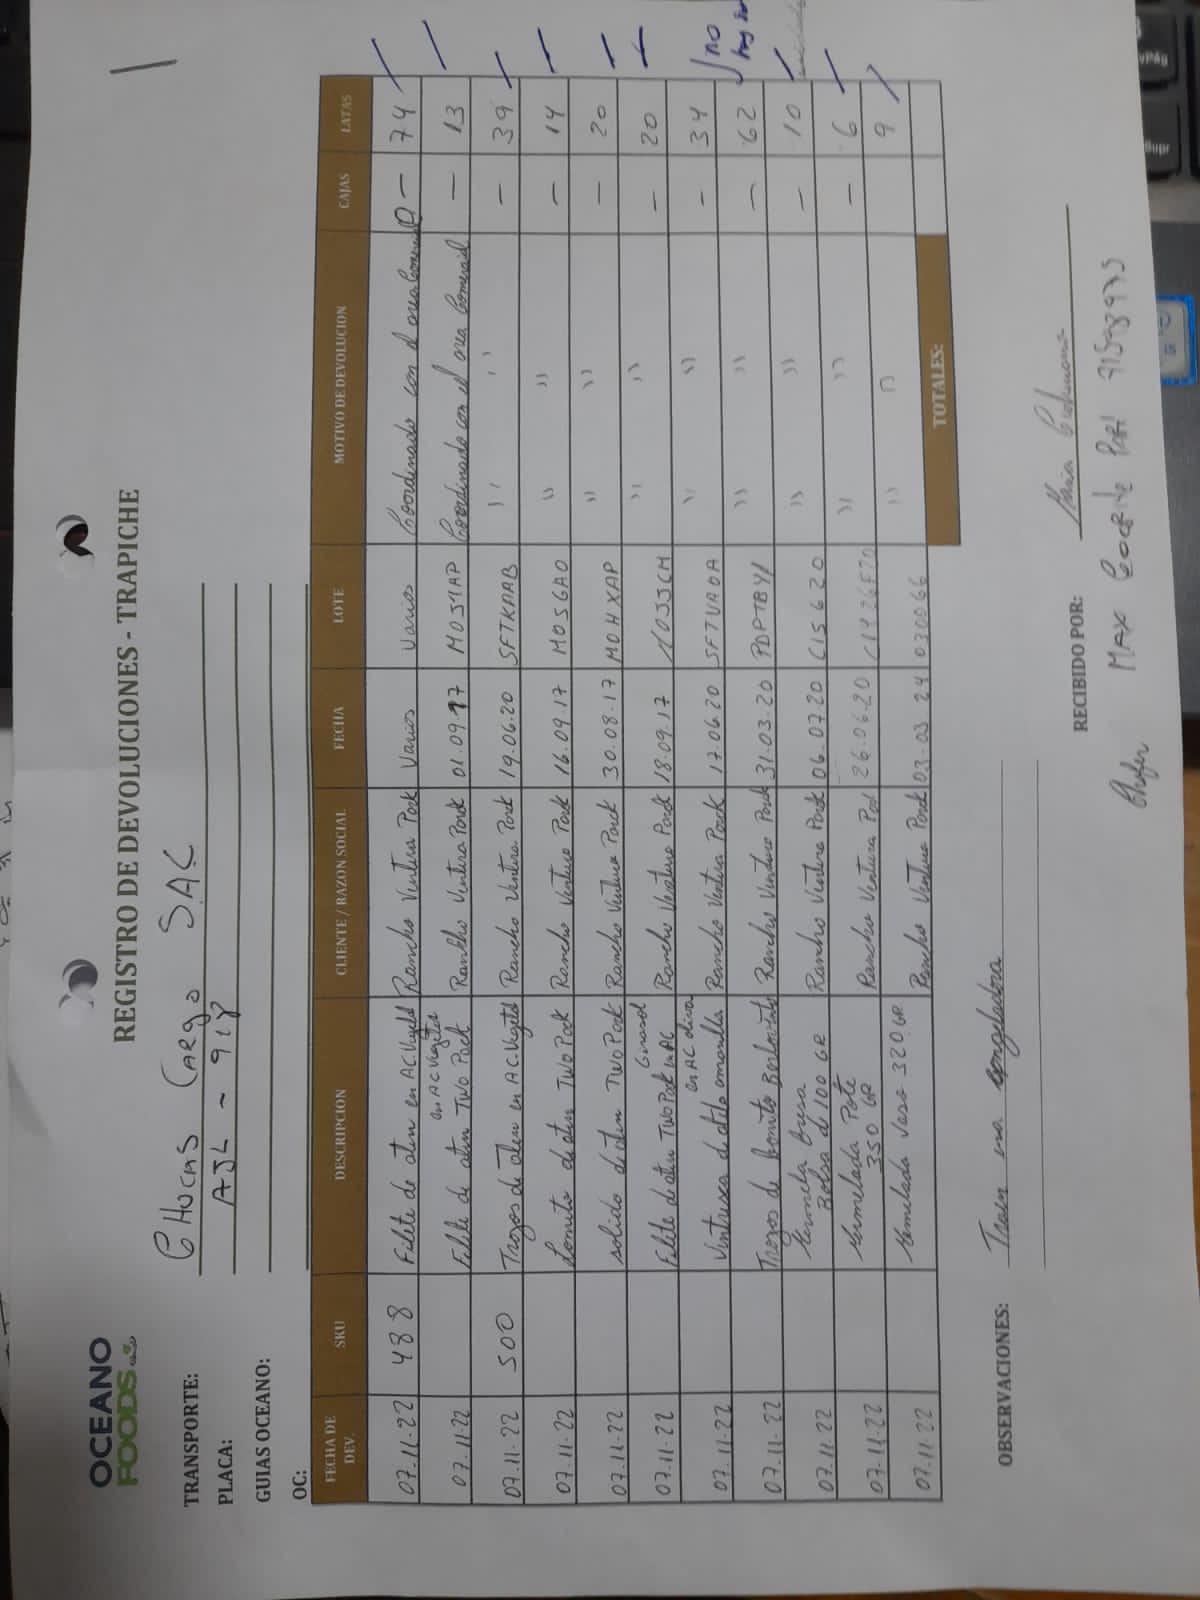 OCEANO
FOODS SAC
REGISTRO DE DEVOLUCIONES - TRAPICHE
TRANSPORTE: CHUCAS CARGO SAC
PLACA: AJL - 918
GUIAS OCEANO:
OC:
FECHA DE DEV. SKU DESCRIPCION CLIENTE / RAZON SOCIAL FECHA LOTE MOTIVO DE DEVOLUCION CAJAS LATAS
07.11.22 488 Filete de atun en AC. Vegetal Rancho Ventura Pork Varios Varios Coordinado con el area Comercial - 74
07.11.22 Filete de atun TWO Pack en AC Vegetal Rancho Ventura Pork 01.09.17 M0S1AP Coordinado con el area Comercial - 13
07.11.22 500 Trozos de Atun en AC. Vegetal Rancho Ventura Pork 19.06.20 SFTKAAB " " - 39
07.11.22 Lomito de atun TWO Pack Rancho Ventura Pork 16.09.17 M0SGAO " " - 14
07.11.22 solido de atun TWO Pack Rancho Ventura Pork 30.08.17 M0HXAP " " - 20
07.11.22 Filete de atun TWO Pack en AC Girasol Rancho Ventura Pork 18.09.17 " " - 20
07.11.22 Ventresca de atun amarilla en AC oliva Rancho Ventura Pork 17.06.20 SFTVAOA " " - 34
07.11.22 Trozos de bonito Rancho Ventura Pork 31-03-20 PDPTBY1 " " - 62
07.11.22 Bolsa de 100 GR Rancho Ventura Pork 06-07.20 C15620 " " - 10
07.11-22 Mermelada Pote 350 GR Rancho Ventura Pork 26-06-20 " " - 6
07.11-22 Mermelada Vaso 320.GR Rancho Ventura Pork 03-03 24 030066 " " 9
no hay
TOTALES:
OBSERVACIONES: Traen una congeladora
RECIBIDO POR: Maria
Chofer MAX